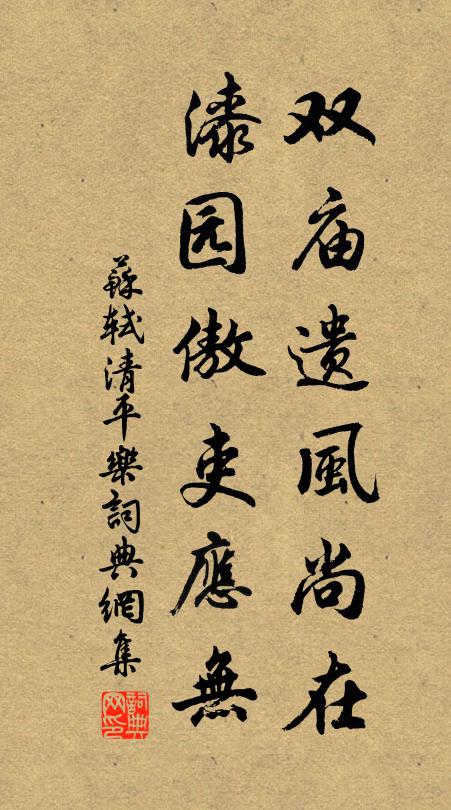 双庙遗風尚在
漆园傲吏應無
蘇轼清平樂詞典網集
詞典网印